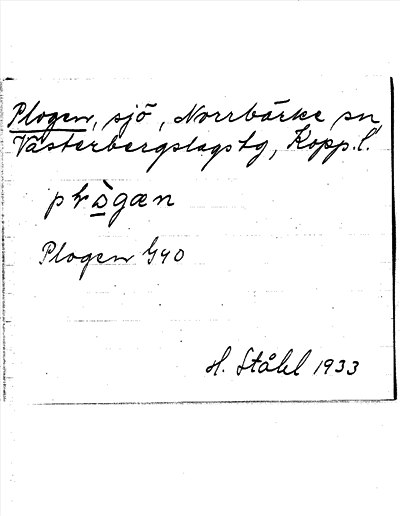 Plogen, sjö, Norrbärke sn
Västerbergslags tg, Kopp. l.
Plogen G40
H. Ståhl 1933